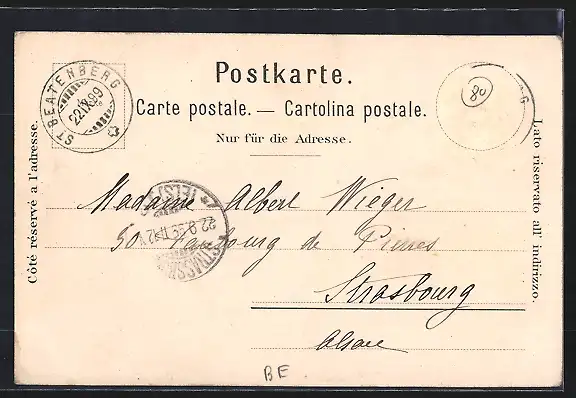 Postkarte.
Carte postale. — Cartolina postale.
Nur für die Adresse.
Côté réservé a l'adresse.
Lato riservato all' indirizzo.
ST. BEATENBERG
22.IX.99
80
Madame Albert Wieger
50 Faubourg de Pierres
Strasbourg
Alsace
STRASSB
22.9.99
BE